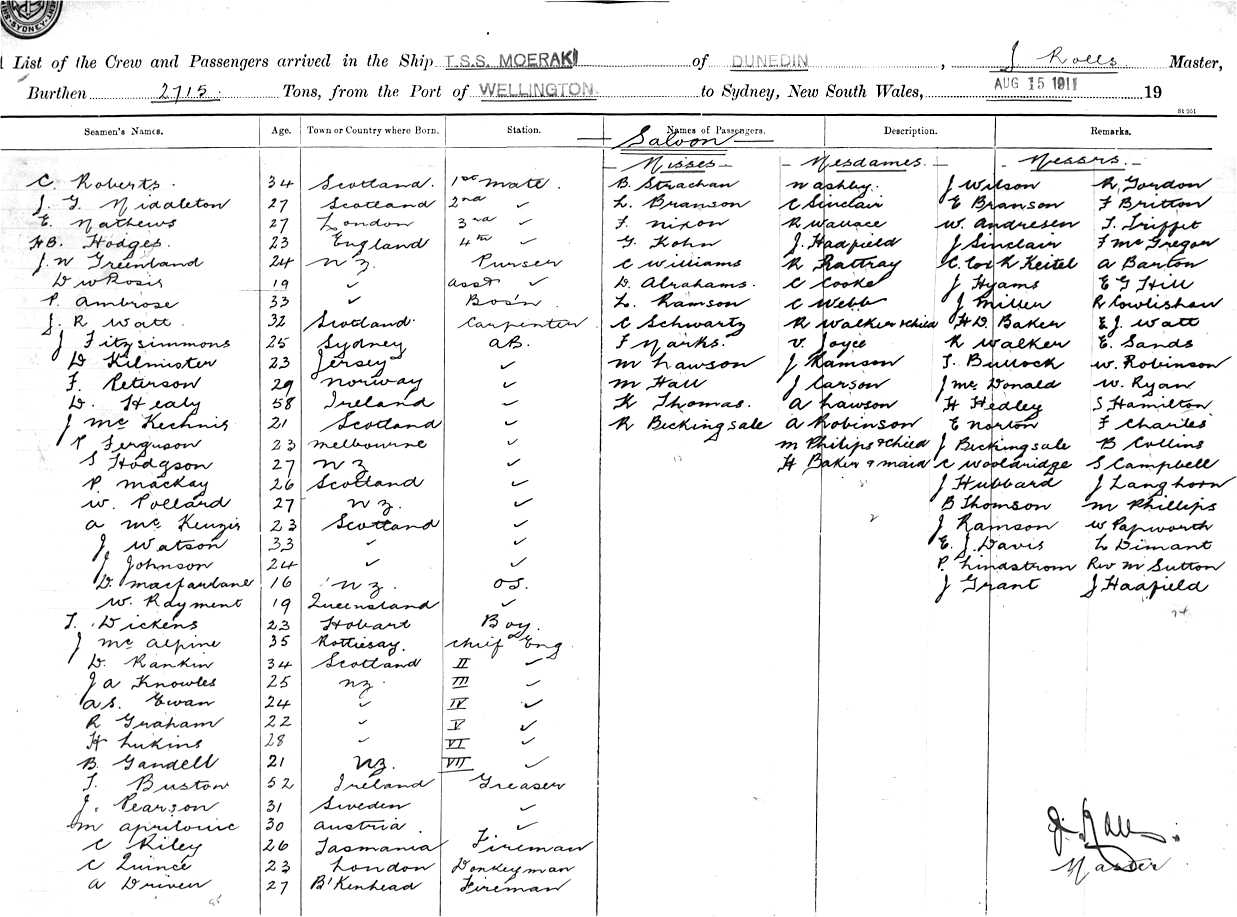 SYDNEY
List of the Crew and Passengers arrived in the Ship T.S.S. MOERAKI of DUNEDIN, J Rolls Master,
Burthen 2715 Tons, from the Port of WELLINGTON to Sydney, New South Wales, AUG 15 1911 19
St 351
Seamen's Names. Age. Town or Country where Born. Station. Names of Passengers. Description. Remarks.
— Saloon —
— Misses — — Mesdames. — — Messrs. —
C. Roberts. 34 Scotland. 1st mate. B. Strachan N Ashby. J Wilson R, Gordon
J. G. Middleton 27 Scotland 2nd ✓ L. Branson C Sinclair E Branson F Britton
E. Mathews 27 London 3rd ✓ F. Nixon R Wallace W. Andresen T. Triffit
HB. Hodges. 23 England 4th ✓ G. Kohn J. Hadfield J Sinclair F McGregor
J. W Greenland 24 N Z. Purser C Williams R Rattray C. Cock R Keitel A Barton
D W Rosis 19 ✓ Asst ✓ D. Abrahams. C Cooke J Hyams E G Hill
P. Ambrose 33 ✓ Bos'n. L. Ramson C Webb J Miller R Cowlishaw
J. R Watt. 32 Scotland. Carpenter C Schwartz R Walker & child H D. Baker E. J. Watt
J Fitzsimmons 25 Sydney AB. F Marks. V. Joyce R Walker E. Sands
D. Kilmister 23 Jersey ✓ M Lawson J Ramson T. Bullock W. Robinson
F. Peterson 29 Norway ✓ M Hall J Carson J McDonald W. Ryan
D. Healy 58 Ireland ✓ K Thomas. A Lawson H Hedley S Hamilton
J McKechnie 21 Scotland ✓ R Beckingsale A Robinson E Norton F Charles
P Ferguson 23 Melbourne ✓ M Philips & Child J Beckingsale B Collins
S Hodgson 27 N Z ✓ H Baker & maid C Wooldridge S Campbell
P. Mackay 26 Scotland ✓ J Hubbard J Langhorn
W. Pollard 27 N Z. ✓ B Thomson M Phillips
A McKenzie 23 Scotland ✓ J Ramson W Papworth
J Watson 33 ✓ ✓ E. J. Davis L Dimant
J Johnson 24 ✓ ✓ P. Lindstrom Rev M Sutton
D. Macfarlane 16 N Z. OS. J Grant J Haafield
W. Rayment 19 Queensland ✓
T. Dickens 23 Hobart Boy.
J McAlpine 35 Rottiesay. Chief Eng
D. Rankin 34 Scotland II ✓
J A Knowles 25 N Z. III ✓
A S. Ewan 24 ✓ IV ✓
R Graham 22 ✓ V ✓
H Lukins 28 ✓ VI ✓
B. Gandell 21 N Z. VII ✓
T. Buston 52 Ireland Greaser
J. Pearson 31 Sweden ✓
M 30 Austria. ✓
C Riley 26 Tasmania Fireman
C Quince 23 London Donkeyman
A Driven 27 B'Kenhead Fireman
J. Rolls.
Master